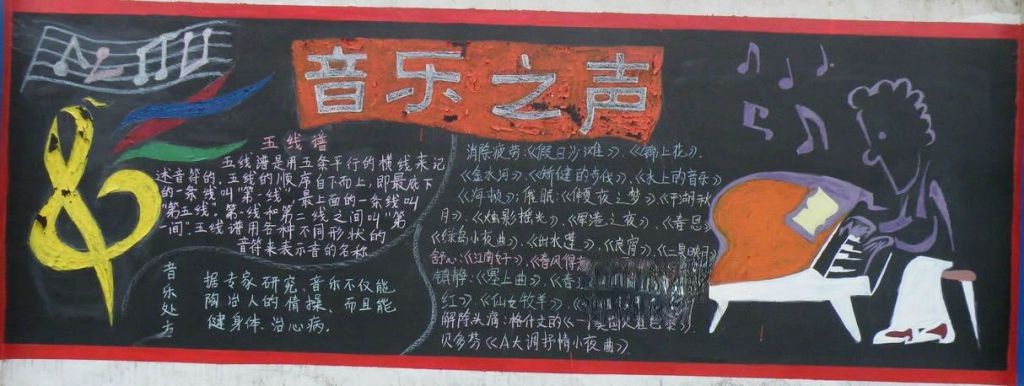 音乐之声
五线谱
五线谱是用五条平行的横线来记
述音符的,五线的顺序自下而上,即最底下
的一条线叫"第一线",最上面的一条线叫
"第五线",第一线和第二线之间叫"第
一间".五线谱用各种不同形状的
音符来表示音的名称
音乐处方
据专家研究,音乐不仅能
陶冶人的情操,而且能
健身体,治心病.
消除疲劳:《假日沙滩》、《锦上花》.
《金水河》、《矫健的步伐》、《水上的音乐》
《海顿》;催眠:《仲夏之梦》《平湖秋
月》、《烛影摇光》、《军港之夜》、《春思》
《绿岛小夜曲》、《出水莲》、《良宵》、《二泉映月》
舒心:《江南好》、《春风得意
镇静:《塞上曲》、《春
红》、《仙女牧羊》
解除头痛:格什文的《一
贝多芬《A大调抒情小夜曲》